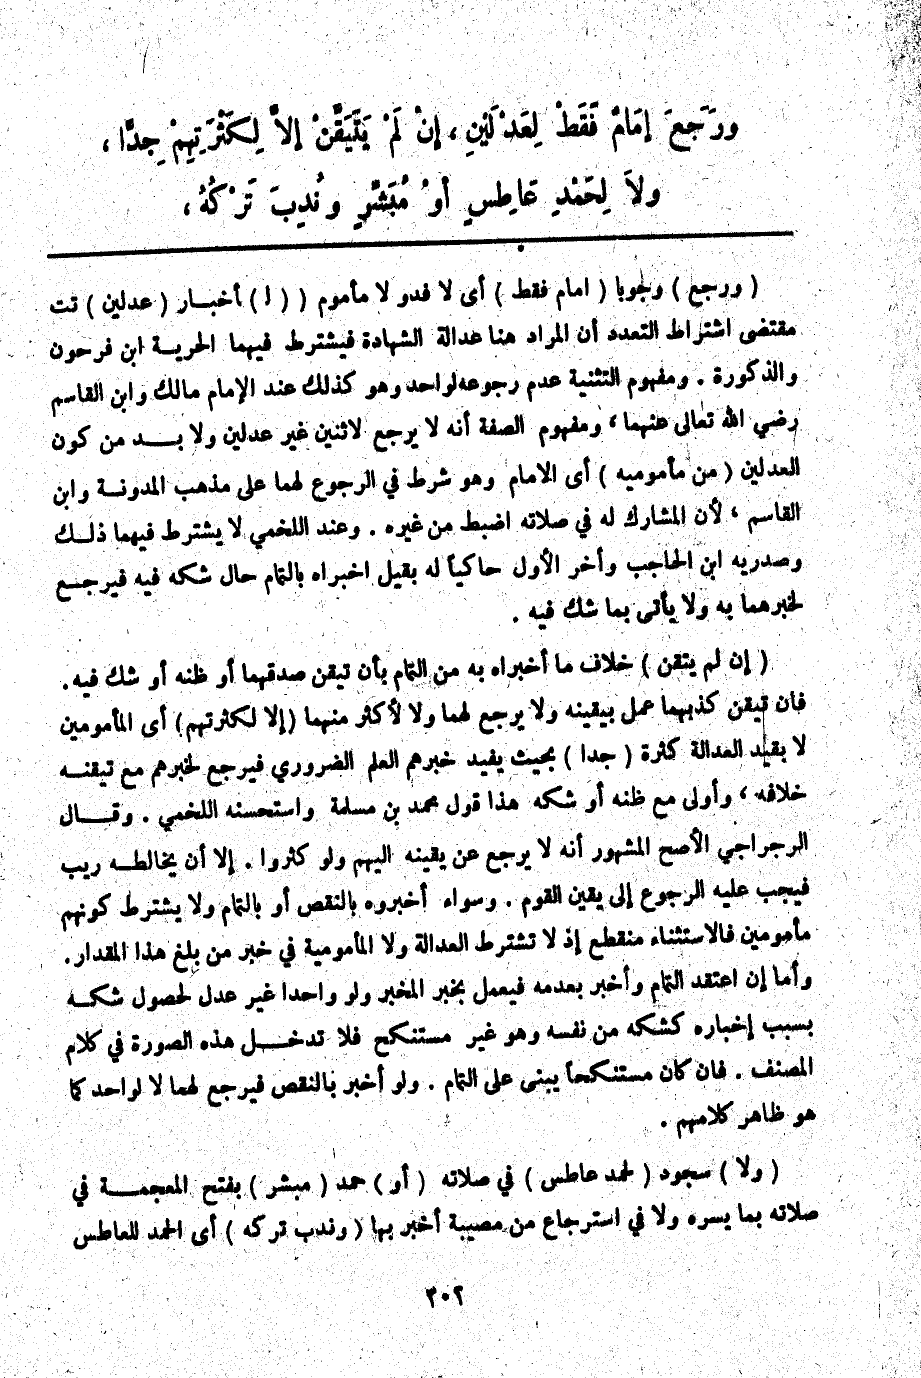 ورَجَعَ إمَامٌ فَقَطْ لِعَدْلَيْنِ ، إنْ لَمْ يَتَيَقَّنْ إلاَّ لِكَثْرَتِهِمْ جِدًّا ،
ولاَ لِحَمْدِ عَاطِسٍ أوْ مُبَشَّرٍ ونُدِبَ تَرْكُهُ ،
( ورجع ) وجوبا ( امام فقط ) أى لا فدو لا مأموم ( ( ل ) أخبـار ( عدلين ) تت
مقتضى اشتراط التعدد أن المراد هنا عدالة الشهادة فيشترط فيهما الحريـة ابن فرحون
والذكورة . ومفهوم التثنية عدم رجوعه لواحد وهو كذلك عند الإمام مالك وابن القاسم
رضي الله تعالى عنهما ، ومفهوم الصفة أنه لا يرجع لاثنين غير عدلين ولا بـد من كون
العدلين ( من مأموميه ) أى الامام وهو شرط في الرجوع لهما على مذهب المدونـة وابن
القاسم ، لأن المشارك له في صلاته اضبط من غيره . وعند اللخمي لا يشترط فيهما ذلـك
وصدر به ابن الحاجب وأخر الأول حاكياً له بقيل اخبراه بالتمام حال شكه فيه فيرجـع
لخبرهما به ولا يأتى بما شك فيه .
( إن لم يتقن ) خلاف ما أخبراه به من التمام بأن تيقن صدقهما أو ظنه أو شك فيه .
فان تيقن كذبهما عمل بيقينه ولا يرجع لهما ولا لأكثر منهما (إلا لكثرتهم) أى المأمومين
لا بقيد العدالة كثرة ( جدا ) بحيث يفيد خبرهم العلم الضروري فيرجع لخبرهم مع تيقنـه
خلافه ، وأولى مع ظنه أو شكه هذا قول محمد بن مسلمة واستحسنه اللخمي . وقـال
الرجراجي الأصح المشهور أنه لا يرجع عن يقينه اليهم ولو كثروا . إلا أن يخالطـه ريب
فيجب عليه الرجوع إلى يقين القوم . وسواء أخبروه بالنقص أو بالتمام ولا يشترط كونهم
مأمومين فالاستثناء منقطع إذ لا تشترط العدالة ولا المأمومية في خبر من بلغ هذا المقدار .
وأما إن اعتقد التمام وأخبر بعدمه فيعمل بخبر المخبر ولو واحدا غير عدل لحصول شكـه
بسبب إخباره كشكه من نفسه وهو غير مستنكح فلا تدخـل هذه الصورة في كلام
المصنف . فان كان مستنكحاً يبنى على التمام . ولو أخبر بالنقص فيرجع لهما لا لواحد كما
هو ظاهر كلامهم .
( ولا ) سجود ( لحمد عاطس ) في صلاته ( أو ) حمد ( مبشر ) بفتح المعجمـة في
صلاته بما يسره ولا في استرجاع من مصيبة أخبر بها ( وندب تركه ) أى الحمد للعاطس
٣٠٢